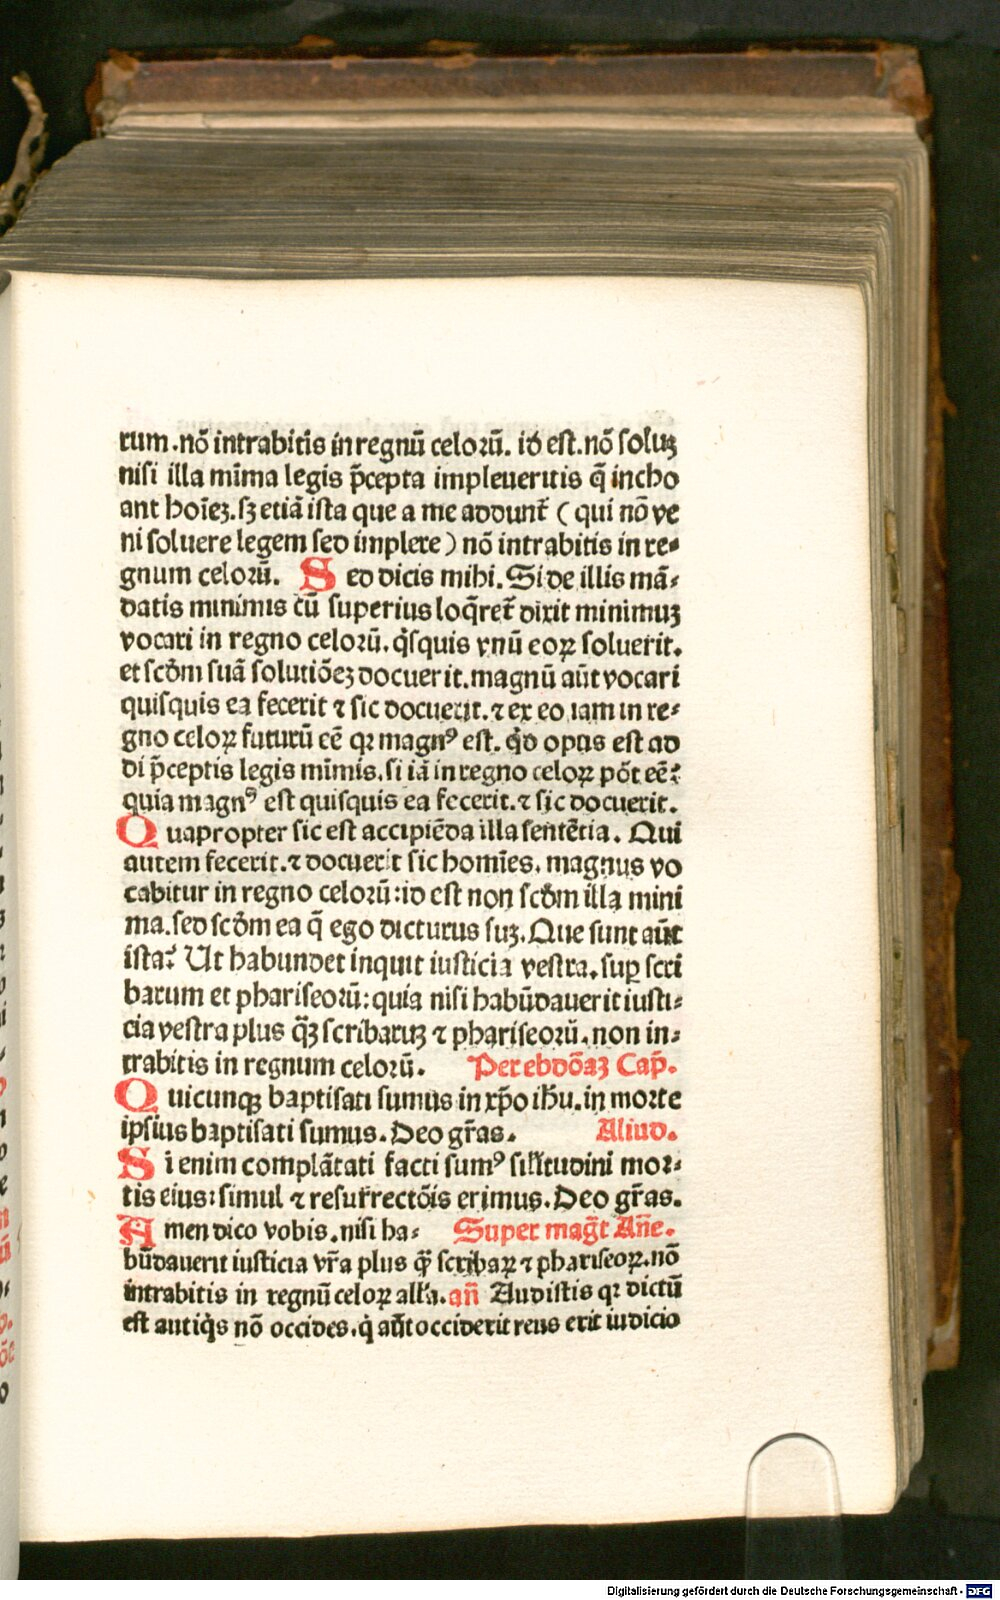 rum.nō intrabitis in regnū celorū. id est.nō soluꝫ
nisi illa mīma legis p̄cepta impleueritis q̄ incho
ant hoīeꝫ.sꝫ etiā ista que a me addunt̄ ( qui nō ve
ni soluere legem sed implere ) nō intrabitis in re⸗
gnum celorū. Sed dicis mihi. Si de illis mā⸗
datis minimis cū superius loq̄ret̄ dixit minimuꝫ
vocari in regno celorū. q̇squis vnū eoꝝ soluerit.
et scd̄m suā solutiōeꝫ docuerit.magnū aūt vocari
quisquis ea fecerit ⁊ sic docuerit.⁊ ex eo iam in re⸗
gno celoꝝ futurū eē qꝛ magnꝰ est. qd̄ opus est ad
di p̄ceptis legis mīmis.si iā in regno celoꝝ pōt eē?
quia magnꝰ est quisquis ea fecerit.⁊ sic docuerit.
Quapropter sic est accipiēda illa sentētia. Qui
autem fecerit.⁊ docuerit sic homīes. magnus vo
cabitur in regno celorū:id est non scd̄m illa mini
ma.sed scd̄m ea q̄ ego dicturus suꝫ. Que sunt aūt
ista? Ut habundet inquit iusticia vestra.suꝑ scri
barum et phariseorū:quia nisi habūdauerit iusti⸗
cia vestra plus q̄ꝫ scribaruꝫ ⁊ phariseorū.non in⸗
trabitis in regnum celorū. Per ebdōaꝫ Cap̄.
Quicunqꝫ baptisati sumus in xp̄o ihū.in morte
ipsius baptisati sumus. Deo gr̄as. Aliud.
Si enim complātati facti sumꝰ sil̄itudini mor⸗
tis eius:simul ⁊ resurrectōis erimus. Deo gr̄as.
Amen dico vobis.nisi ha⸗ Super maḡt An̄e.
būdauerit iusticia vr̄a plus q̄ꝫ scribaꝝ ⁊ phariseoꝝ.nō
intrabitis in regnū celoꝝ all̄a. an̄ Audistis qꝛ dictū
est antiq̇s nō occides.q̇ aūt occiderit reus erit iudicio
Digitalisierung gefördert durch die Deutsche Forschungsgemeinschaft - DFG